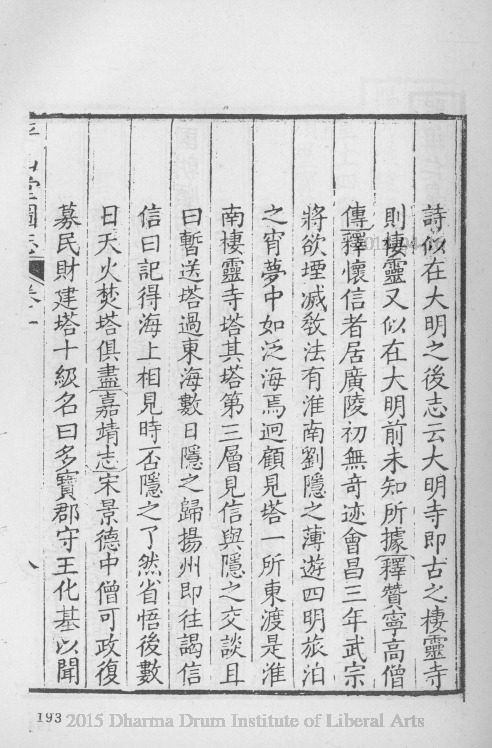 詩似在大明之後志云大明寺即古之棲靈寺
則棲靈又似在大明前未知所據釋贊寧高僧
傳釋懷信者居廣陵初無奇迹會昌三年武宗
將欲堙滅敎法有淮南劉隱之薄遊四明旅泊
之宵夢中如泛海焉迥顧見塔一所東渡是淮
南棲靈寺塔其塔第三層見信與隱之交談且
曰暫送塔過東海數日隱之歸揚州即往謁信
信曰記得海上相見時否隱之了然省悟後數
日天火焚塔俱盡嘉靖志宋景德中僧可政復
募民財建塔十級名曰多寶郡守王化基以聞
平山堂圖志 卷一 八
193 2015 Dharma Drum Institute of Liberal Arts